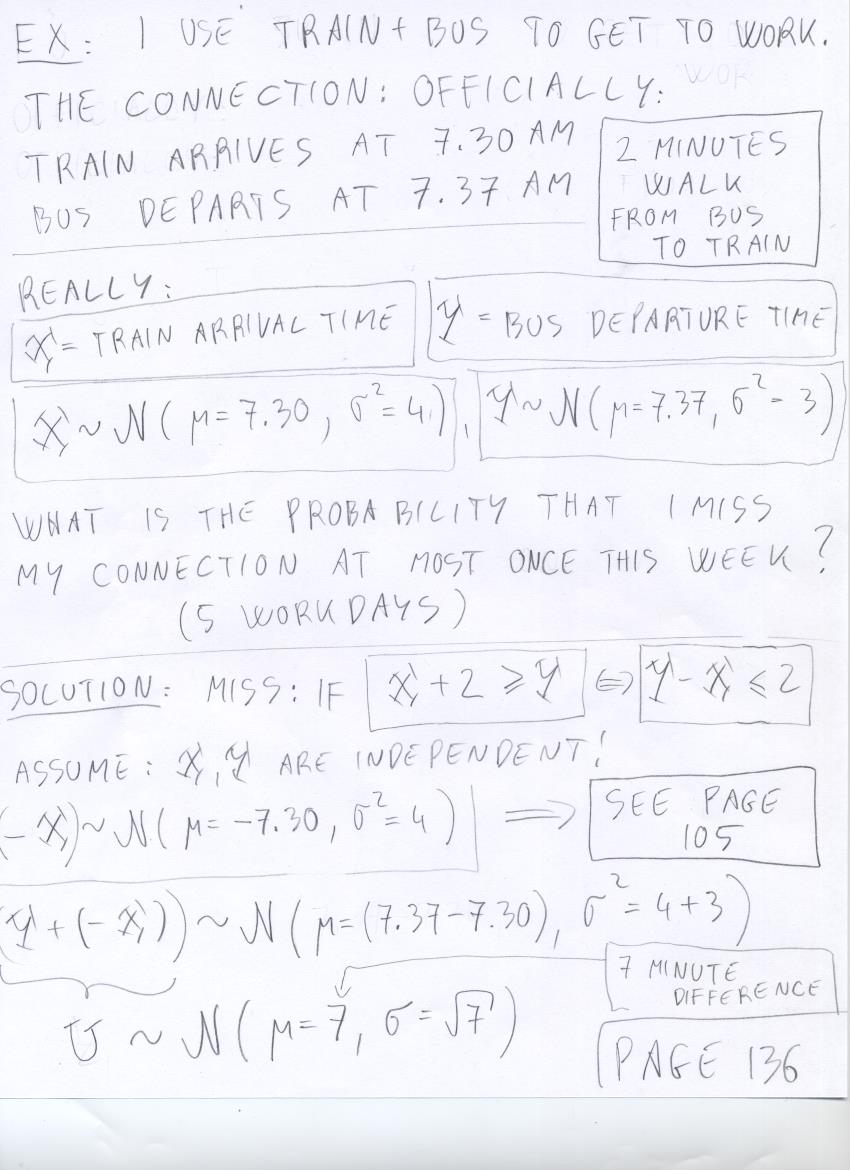 EX: I USE TRAIN + BUS TO GET TO WORK.
THE CONNECTION: OFFICIALLY:
TRAIN ARRIVES AT 7.30 AM
BUS DEPARTS AT 7.37 AM
2 MINUTES
WALK
FROM BUS
TO TRAIN
REALLY:
X = TRAIN ARRIVAL TIME
Y = BUS DEPARTURE TIME
X ~ N( μ = 7.30 , σ² = 4 ) , Y ~ N( μ = 7.37, σ² = 3 )
WHAT IS THE PROBABILITY THAT I MISS
MY CONNECTION AT MOST ONCE THIS WEEK?
(5 WORKDAYS)
SOLUTION: MISS: IF X + 2 ⩾ Y ⇔ Y - X ⩽ 2
ASSUME: X, Y ARE INDEPENDENT!
(- X) ~ N( μ = -7.30 , σ² = 4 ) ⟹ SEE PAGE
105
(Y + (- X)) ~ N( μ = (7.37 - 7.30), σ² = 4 + 3 )
7 MINUTE
DIFFERENCE
U ~ N( μ = 7, σ = √7 )
PAGE 136